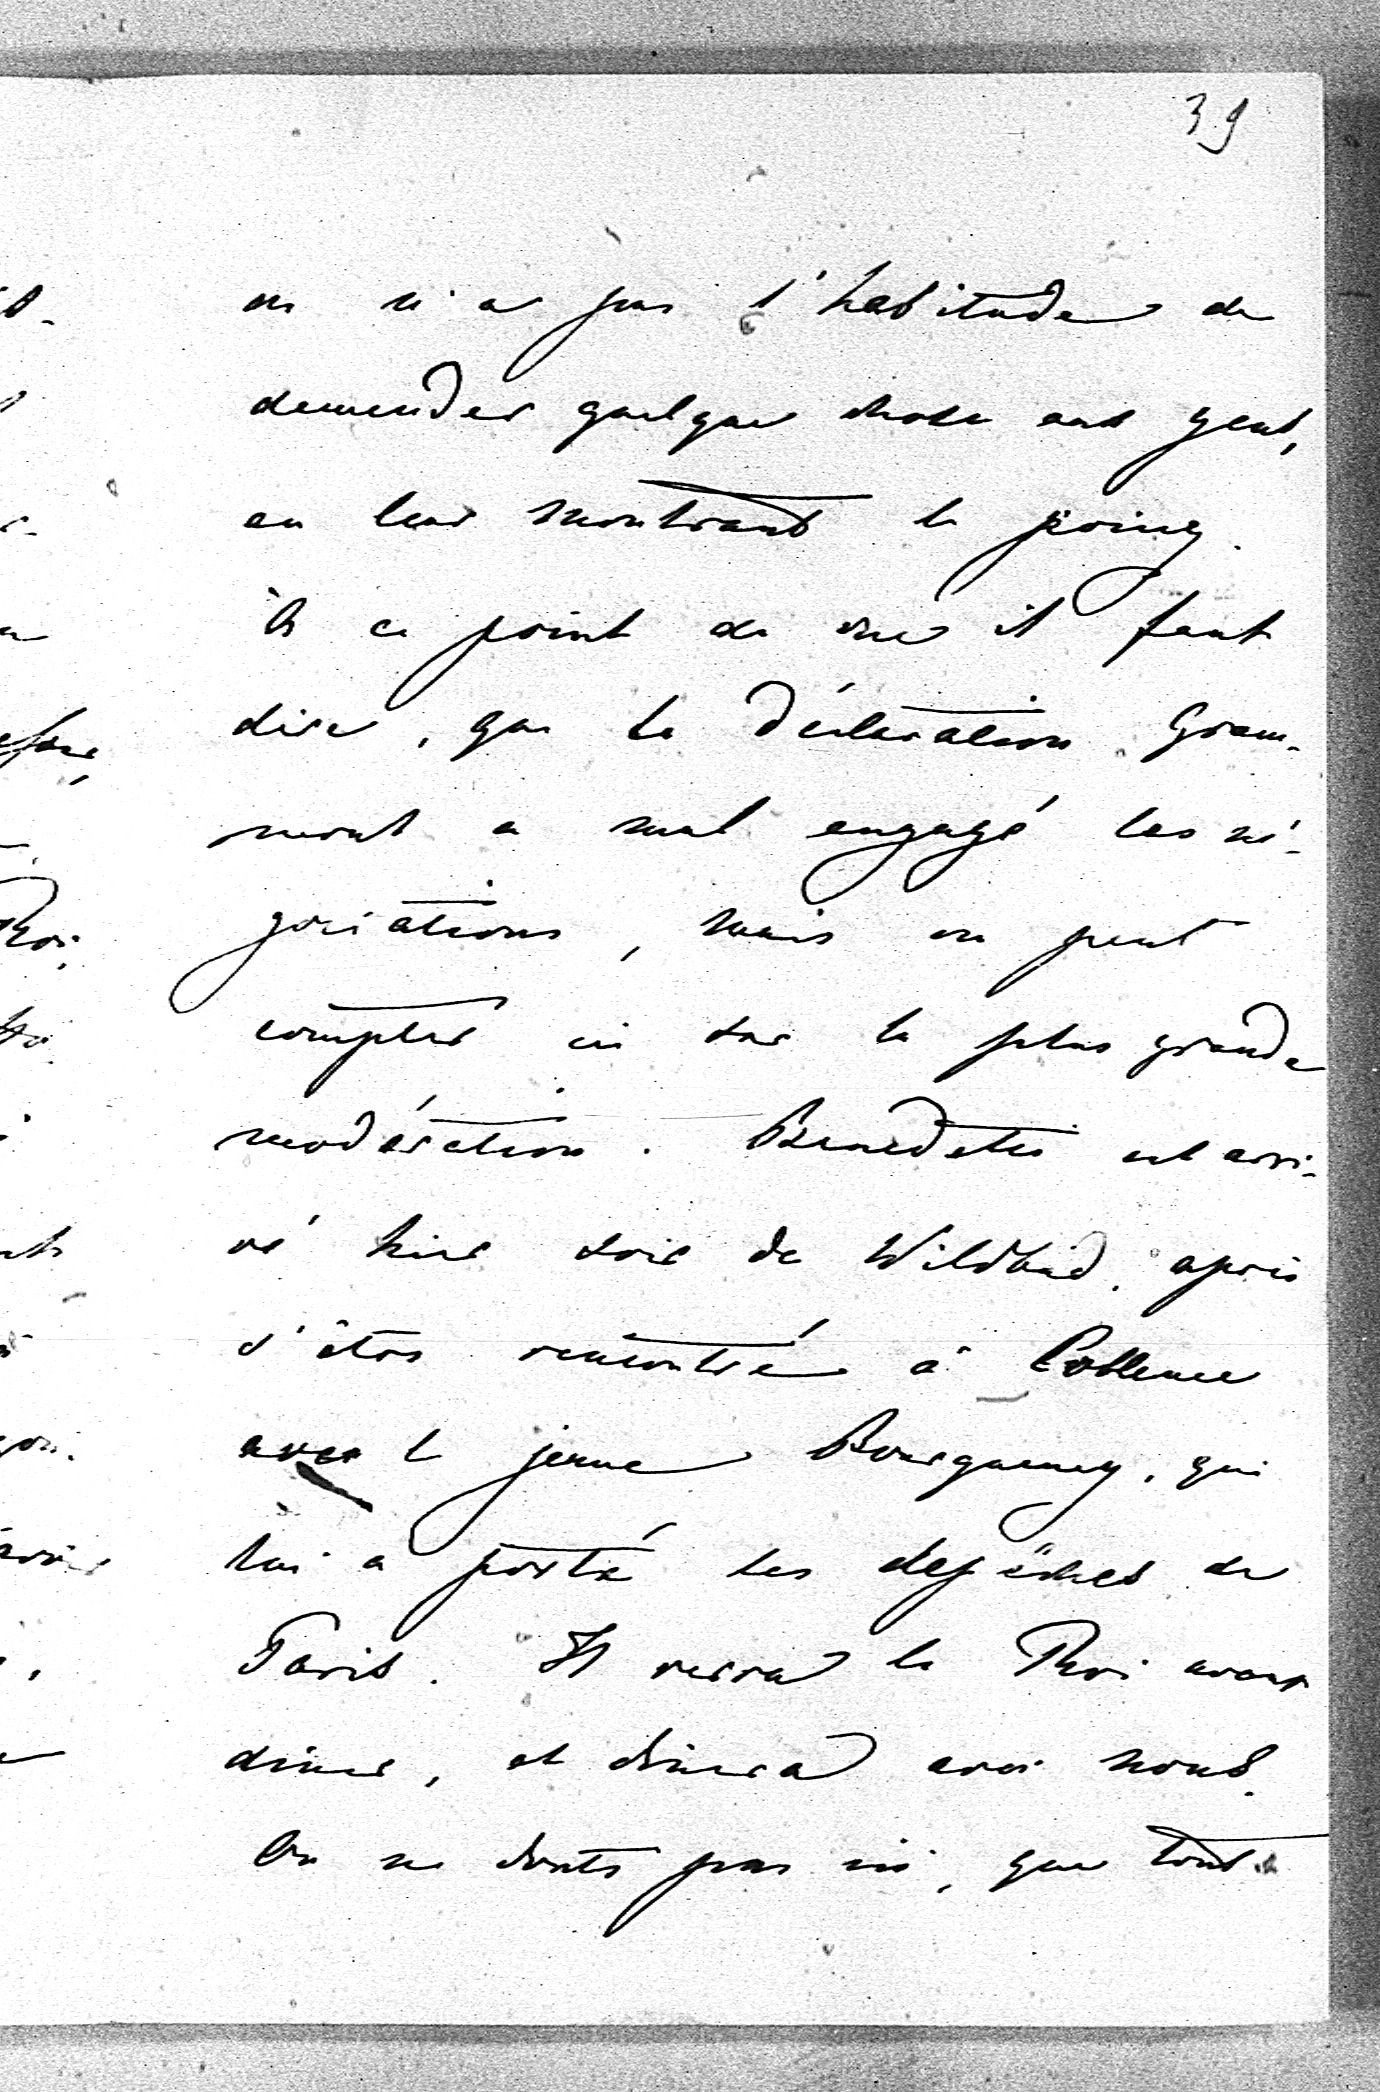 39
on n'a pas l'habitude de
demander quelque chose aux gens,
en leur montrant le poing.
À ce point de vue il faut
dire, que la déclaration Gram-
mont a mal engagé les né-
gociations, mais on peut
compter ici sur la plus grande
modération. Benedetti est arri-
vé hier soir de Wildbad, après
s'être rencontré à Coblence
avec le jeune Bourqueney, qui
lui a porté les depêches de
Paris. Il verra le Roi avant
diner, et dinera avec nous.
On ne doute pas ici, que tout